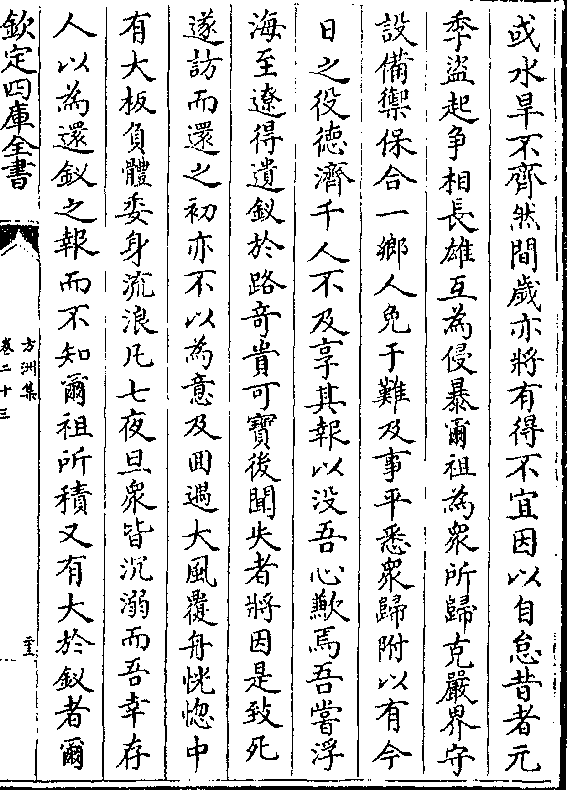 或水旱不齊然間歲亦將有得不宜因以自怠昔者元
季盜起爭相長雄互為侵暴爾祖為衆所歸克嚴界守
設備禦保合一鄉人免于難及事平悉衆歸附以有今
日之役徳濟千人不及享其報以没吾心歉焉吾嘗浮
海至遼得遺釵於路竒貴可寶後聞失者將因是致死
遂訪而還之初亦不以為意及回遇大風覆舟恍惚中
有大板負體委身流浪凡七夜旦衆皆沉溺而吾幸存
人以為還釵之報而不知爾祖所積又有大於釵者爾
欽定四庫全書
方洲集
卷二十三